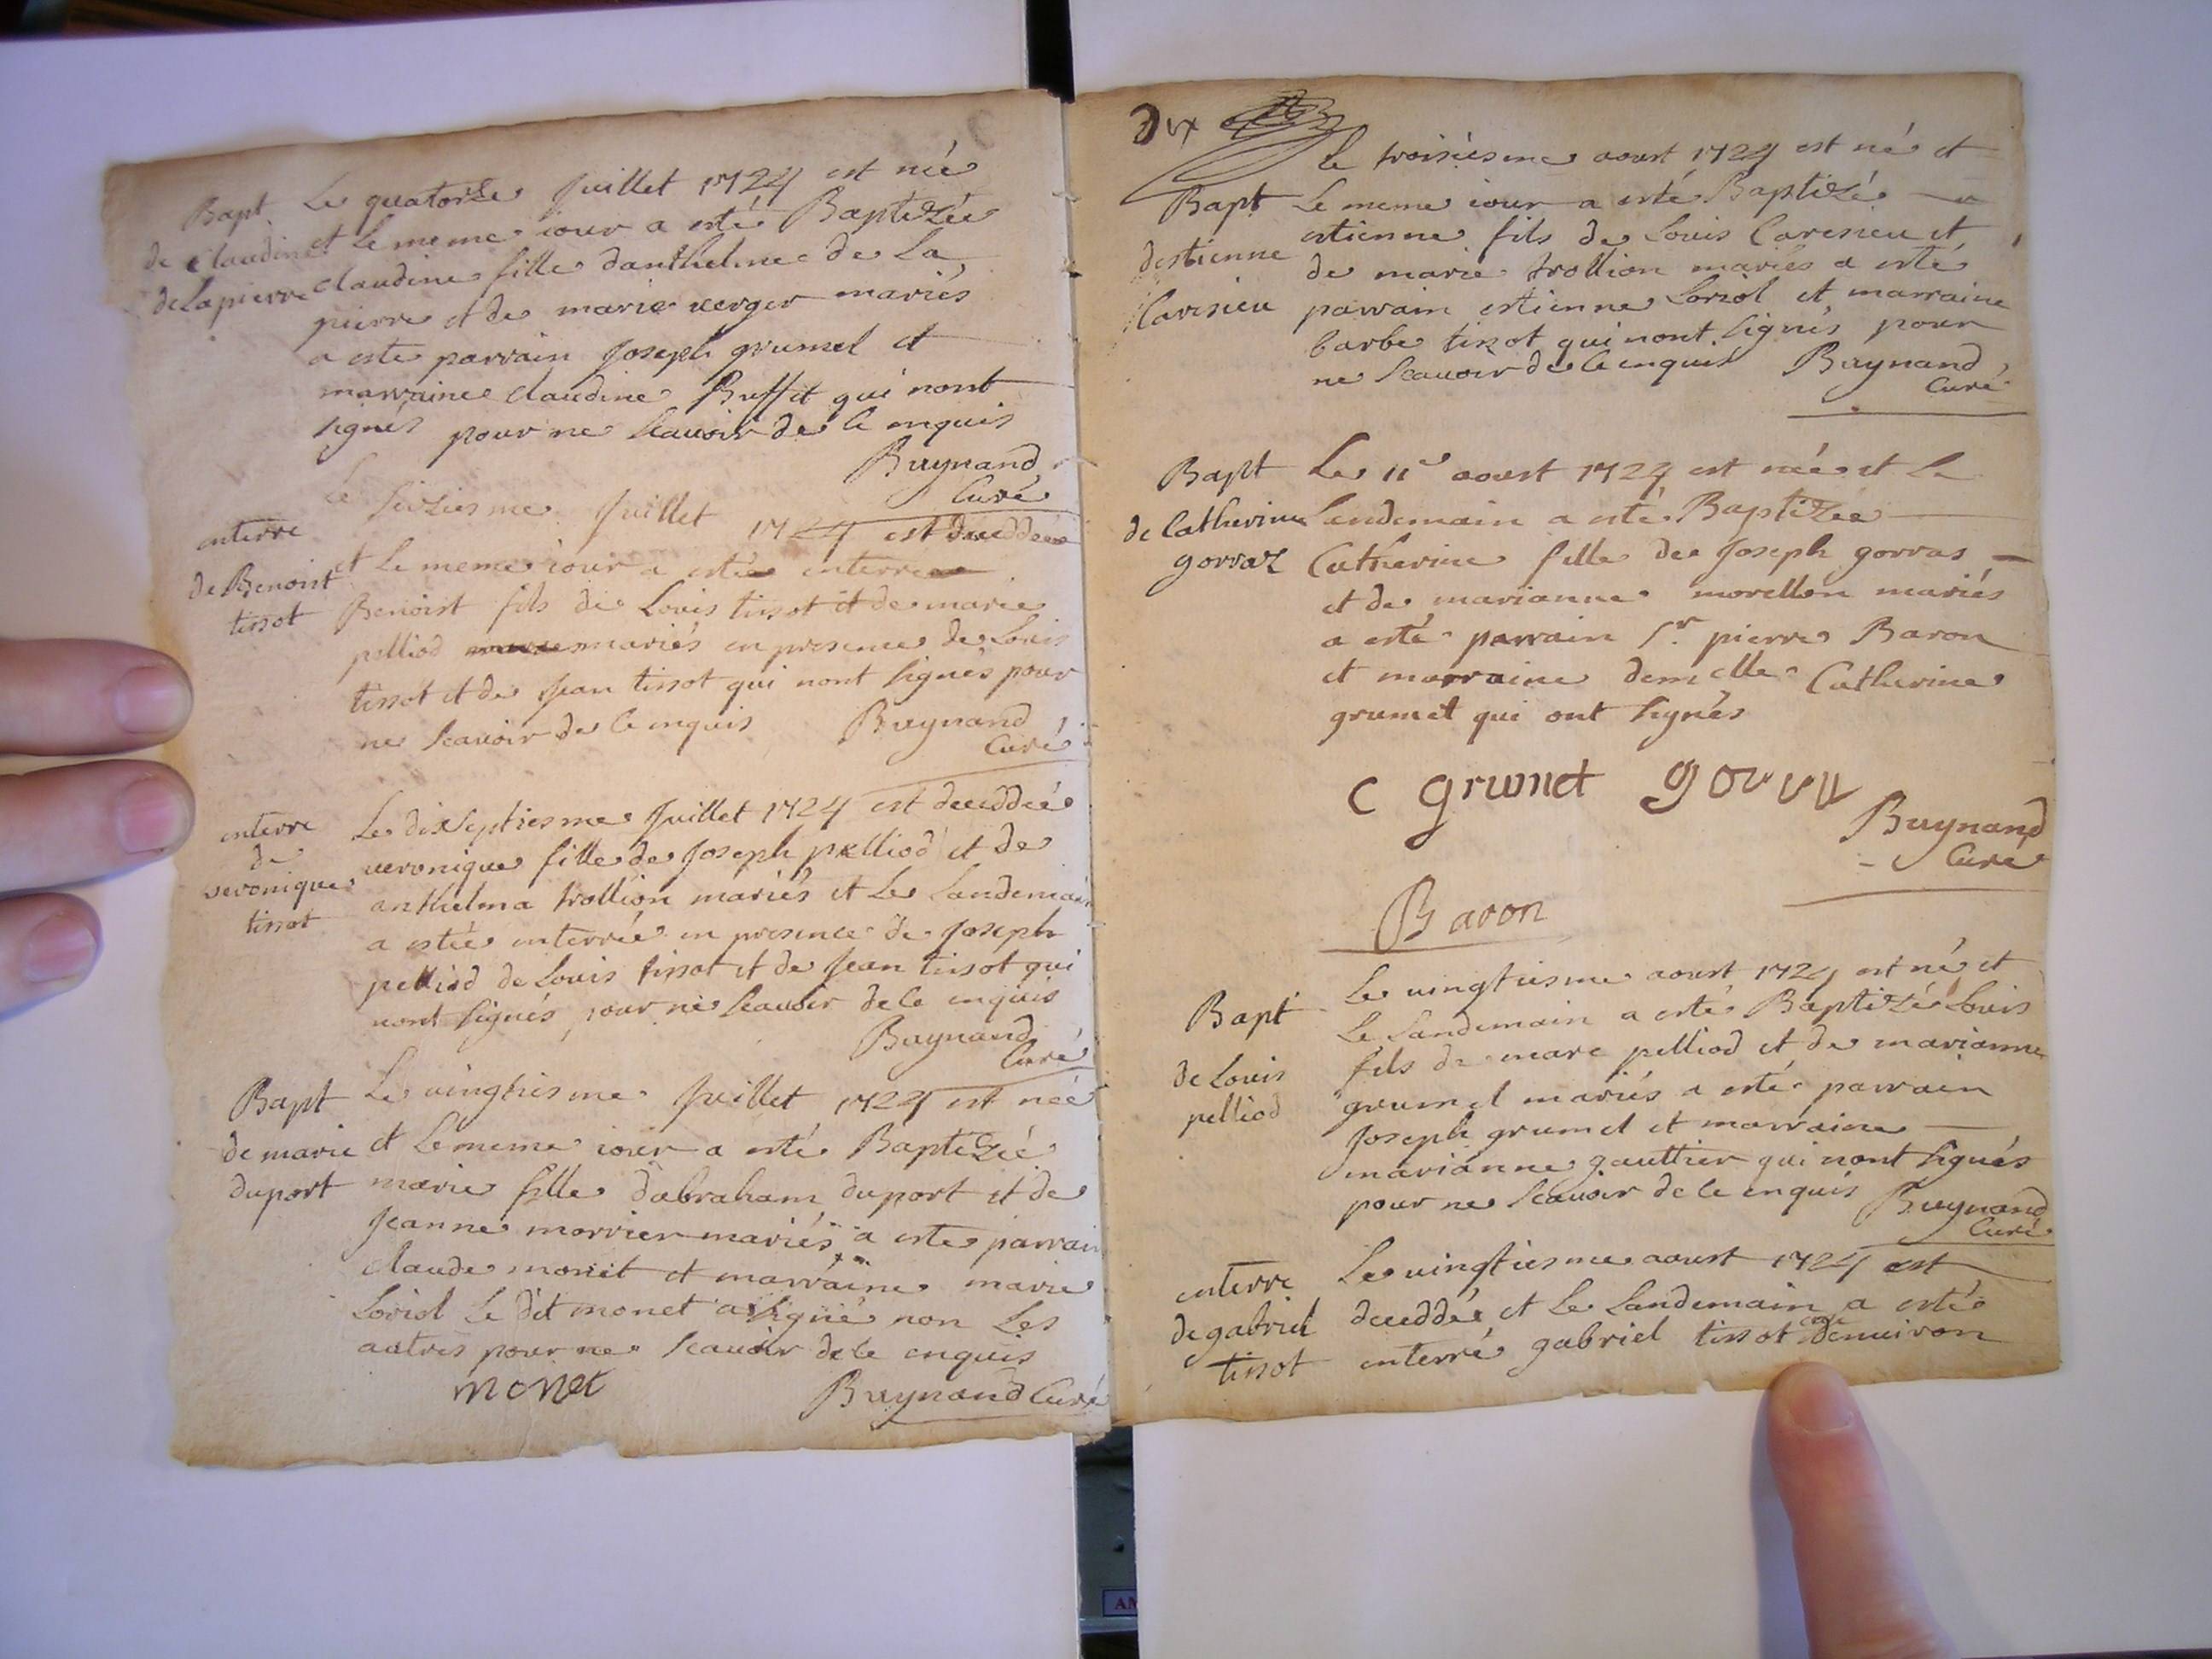 Bapt
de Claudine
de Lapierre
Le quatorze Juillet 1724 est née
et Le meme iour a esté Baptizée
claudine fille danthelme de La
pierre et de marie verger mariés
a esté parrain Joseph grumel et
marraine claudine Buffet qui nont
signés pour ne scauoir de ce enquis
Buynand
Curé
enterre
de Benoist
tissot
Le seiziesme Juillet 1724 est deceddé
et Le meme iour a esté enterre
Benoist fils de Louis tissot et de marie
pelliod mariés en presence de Louis
tissot et de Jean tissot qui nont signés pour
ne scauoir de ce enquis Buynand
Curé
enterre
de
veronique
tissot
Le dixseptiesme Juillet 1724 est deceddée
veronique fille de Joseph pelliod et de
anthelma trollion mariés et Le Landemain
a estée enterrée en presence de Joseph
pelliod de Louis tissot et de Jean tissot qui
nont signés pour ne scauoir de ce enquis
Buynand
Curé
Bapt
de marie
duport
Le vingtiesme Juillet 1724 est née
et Le meme iour a esté Baptizée
marie fille dabraham duport et de
Jeanne morrier mariés a este parrain
claude monet et marraine marie
Loriol Le dit monet a signé non Les
autres pour ne scauoir de ce enquis
monet
Buynand Curé
Dix
Bapt
destienne
Caresieu
le troisiesme aoust 1724 est né et
Le meme iour a esté Baptizé
estienne fils de Louis Caresieu et
de marie trollion mariés a esté
parrain estienne Loriol et marraine
barbe tissot qui nont signés pour
ne scauoir de ce enquis Buynand
Curé
Bapt
de Catherine
gorraz
Le 11e aoust 1724 est née et Le
Landemain a esté Baptizée
Catherine fille de Joseph gorras
et de marianne morellon mariés
a esté parrain Sr. pierre Baron
et marraine demelle Catherine
grumet qui ont signés
C grumet
Buynand
Curé
Baron
Bapt
de Louis
pelliod
Le vingtiesme aoust 1724 est né et
Le Landemain a esté Baptizé Louis
fils de marc pelliod et de marianne
grumel mariés a esté parrain
Joseph grumel et marraine
marianne gauttier qui nont signés
pour ne scauoir de ce enquis Buynand
Curé
enterre
de gabriel
tissot
Le vingtiesme aoust 1724 est
deceddé et Le Landemain a esté
enterré gabriel tissot agé denuiron